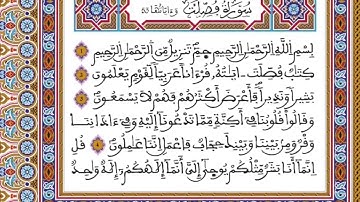 سُورَةُ فُصِّلَتْ
بِسْمِ اِللَّهِ اِلرَّحْمَٰنِ اِلرَّحِيمِ حَمِٓ تَنزِيلٌ مِّنَ اَلرَّحْمَٰنِ اِلرَّحِيمِ
كِتَٰبٌ فُصِّلَتَ اٰيَٰتُهُۥ قُرْءَاناً عَرَبِيّاٗ لِّقَوْمٍ يَعْلَمُونَ
بَشِيراٗ وَنَذِيراٗ فَأَعْرَضَ أَكْثَرُهُمْ فَهُمْ لَا يَسْمَعُونَ
وَقَالُواْ قُلُوبُنَا فِےٓ أَكِنَّةٖ مِّمَّا تَدْعُونَآ إِلَيْهِ وَفِےٓ ءَاذَانِنَا
وَقْرٞ وَمِنۢ بَيْنِنَا وَبَيْنِكَ حِجَابٞ فَاعْمَلِ اِنَّنَا عَٰمِلُونَ قُلِ
اِنَّمَآ أَنَا بَشَرٞ مِّثْلُكُمْ يُوح۪ىٰٓ إِلَيَّ أَنَّمَآ إِلَٰهُكُمُۥٓ إِلَٰهٞ وَٰحِدٞ